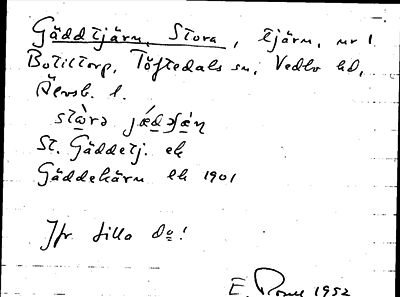 Gäddtjärn, Stora, tjärn, nr 1
Botiltorp, Töftedals sn, Vedbo hd,
Älvsb. l.
St. Gäddetj. ek
Gäddekärn ek 1901
Jfr Lilla do!
E. 1952